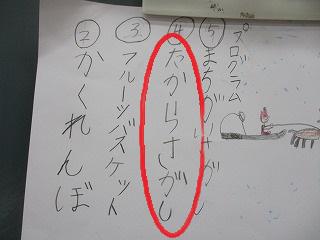 プログラム
⑤まちがいさがし
④たからさがし
③フルーツバスケット
②かくれんぼ